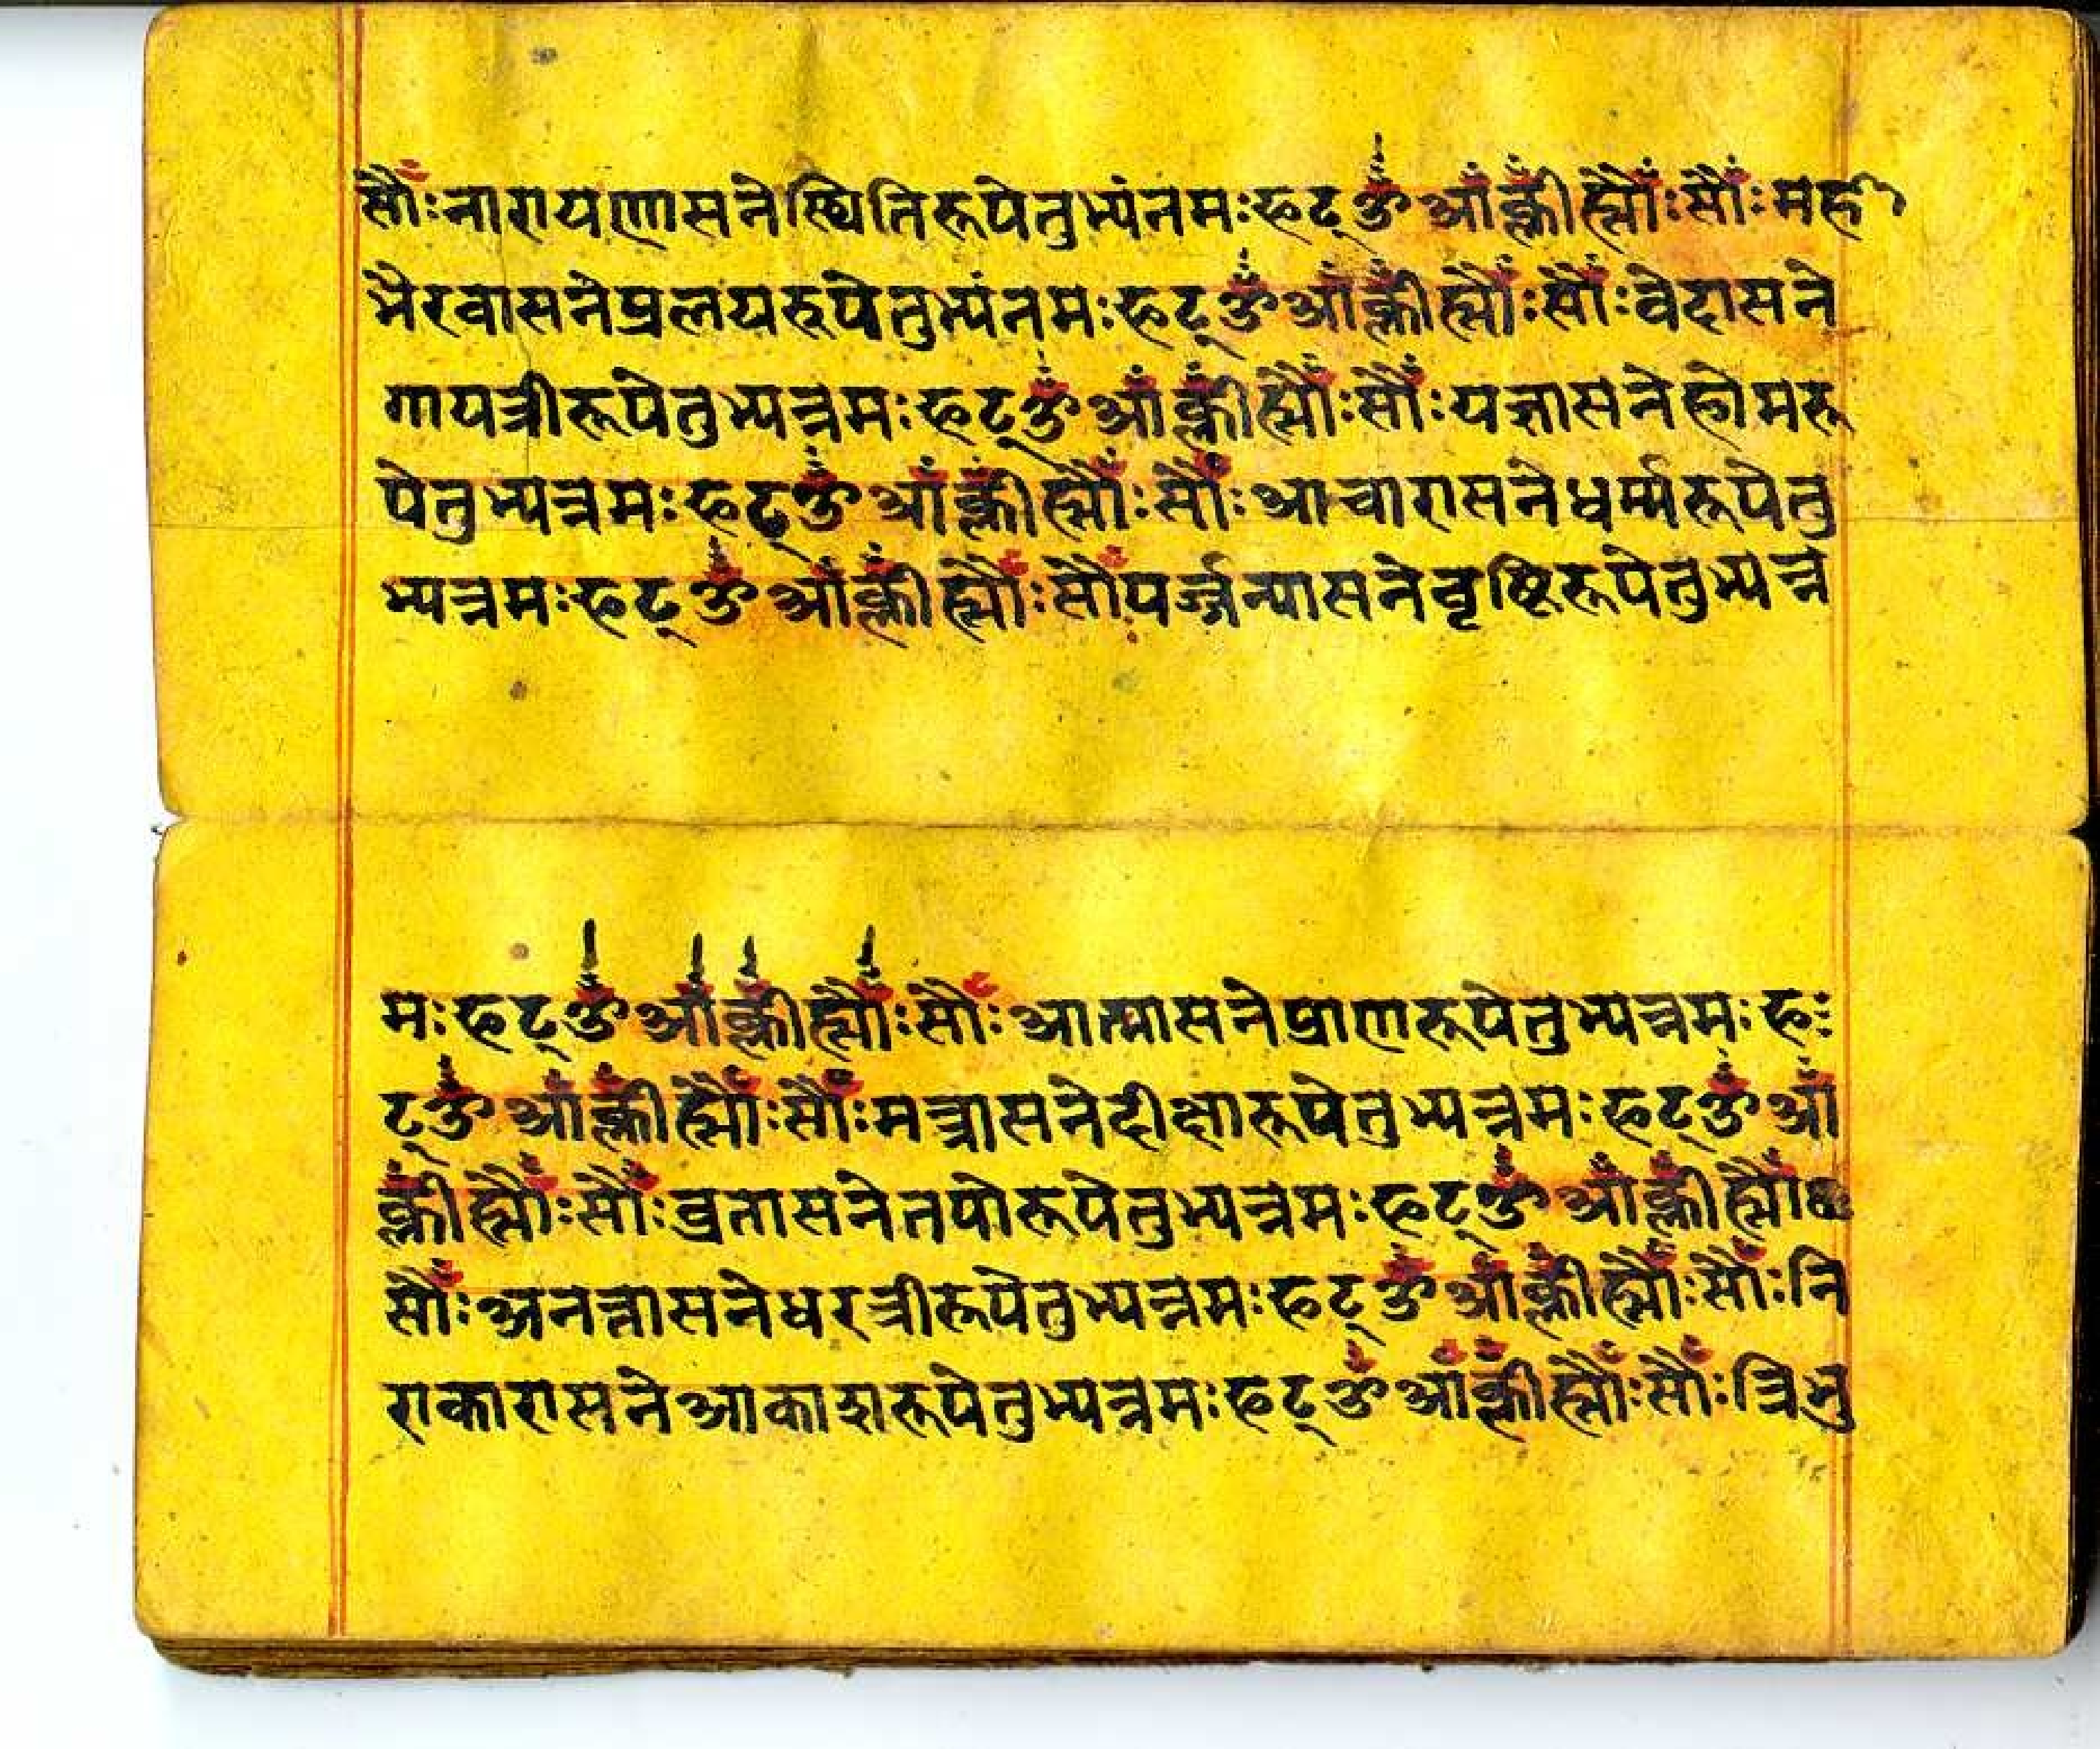 सौँः नारायणासनेस्थितिरूपेतुभ्यंनमःफट् ॐ आँ क्लीँ ह्सौँः सौँः महा
भैरवासनेप्रलयरुपेतुभ्यंनमःफट् ॐ आँ क्लीँ ह्सौँः सौँः वेदासने
गायत्रीरूपेतुभ्यन्नमःफट् ॐ आँ क्लीँ ह्सौँः सौँः यज्ञासनेहोमरू
पेतुभ्यन्नमःफट् ॐ आँ क्लीँ ह्सौँः सौँः आचारासनेधर्म्मरूपेतु
भ्यन्नमःफट् ॐ आँ क्लीँ ह्सौँः सौँ पर्ज्जन्यासनेवृष्टिरूपेतुभ्यन्न
मःफट् ॐ आँ क्लीँ ह्सौँः सौँः आत्मासनेप्राणरूपेतुभ्यन्नमःफ
ट् ॐ आँ क्लीँ ह्सौँः सौँः मन्त्रासनेदीक्षारूपेतुभ्यन्नमःफट् ॐ आँ
क्लीँ ह्सौँः सौँः व्रतासनेतपोरूपेतुभ्यन्नमःफट् ॐ आँ क्लीँ ह्सौँ
सौँः अनन्तासनेधरत्रीरूपेतुभ्यन्नमःफट् ॐ आँ क्लीँ ह्सौँः सौँः नि
राकारासनेआकाशरूपेतुभ्यन्नमःफट् ॐ आँ क्लीँ ह्सौँः सौँः त्रिभु